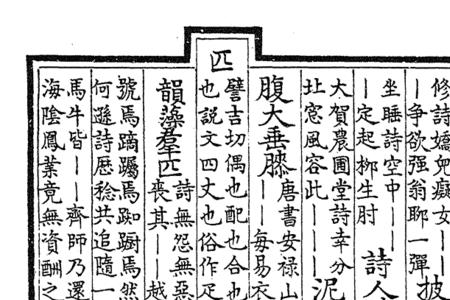 修詩嬌兒癡女——披
——爭欲强翁聊一彈
坐睡詩空中——詩人
——定起栁生肘
大賀農圃堂詩幸分
圵窓風容此——泥
腹大垂膝——唐書安禄山
——每易衣
匹
譬吉切偶也配也合也
也説文四丈也俗作疋
韻藻羣匹詩無怨無惡
喪其——越
號焉蹢躅焉踟蹰焉然
何遜詩歷稔共追隨一
馬牛皆——齊師乃還
海陰鳳業竟無資酬之